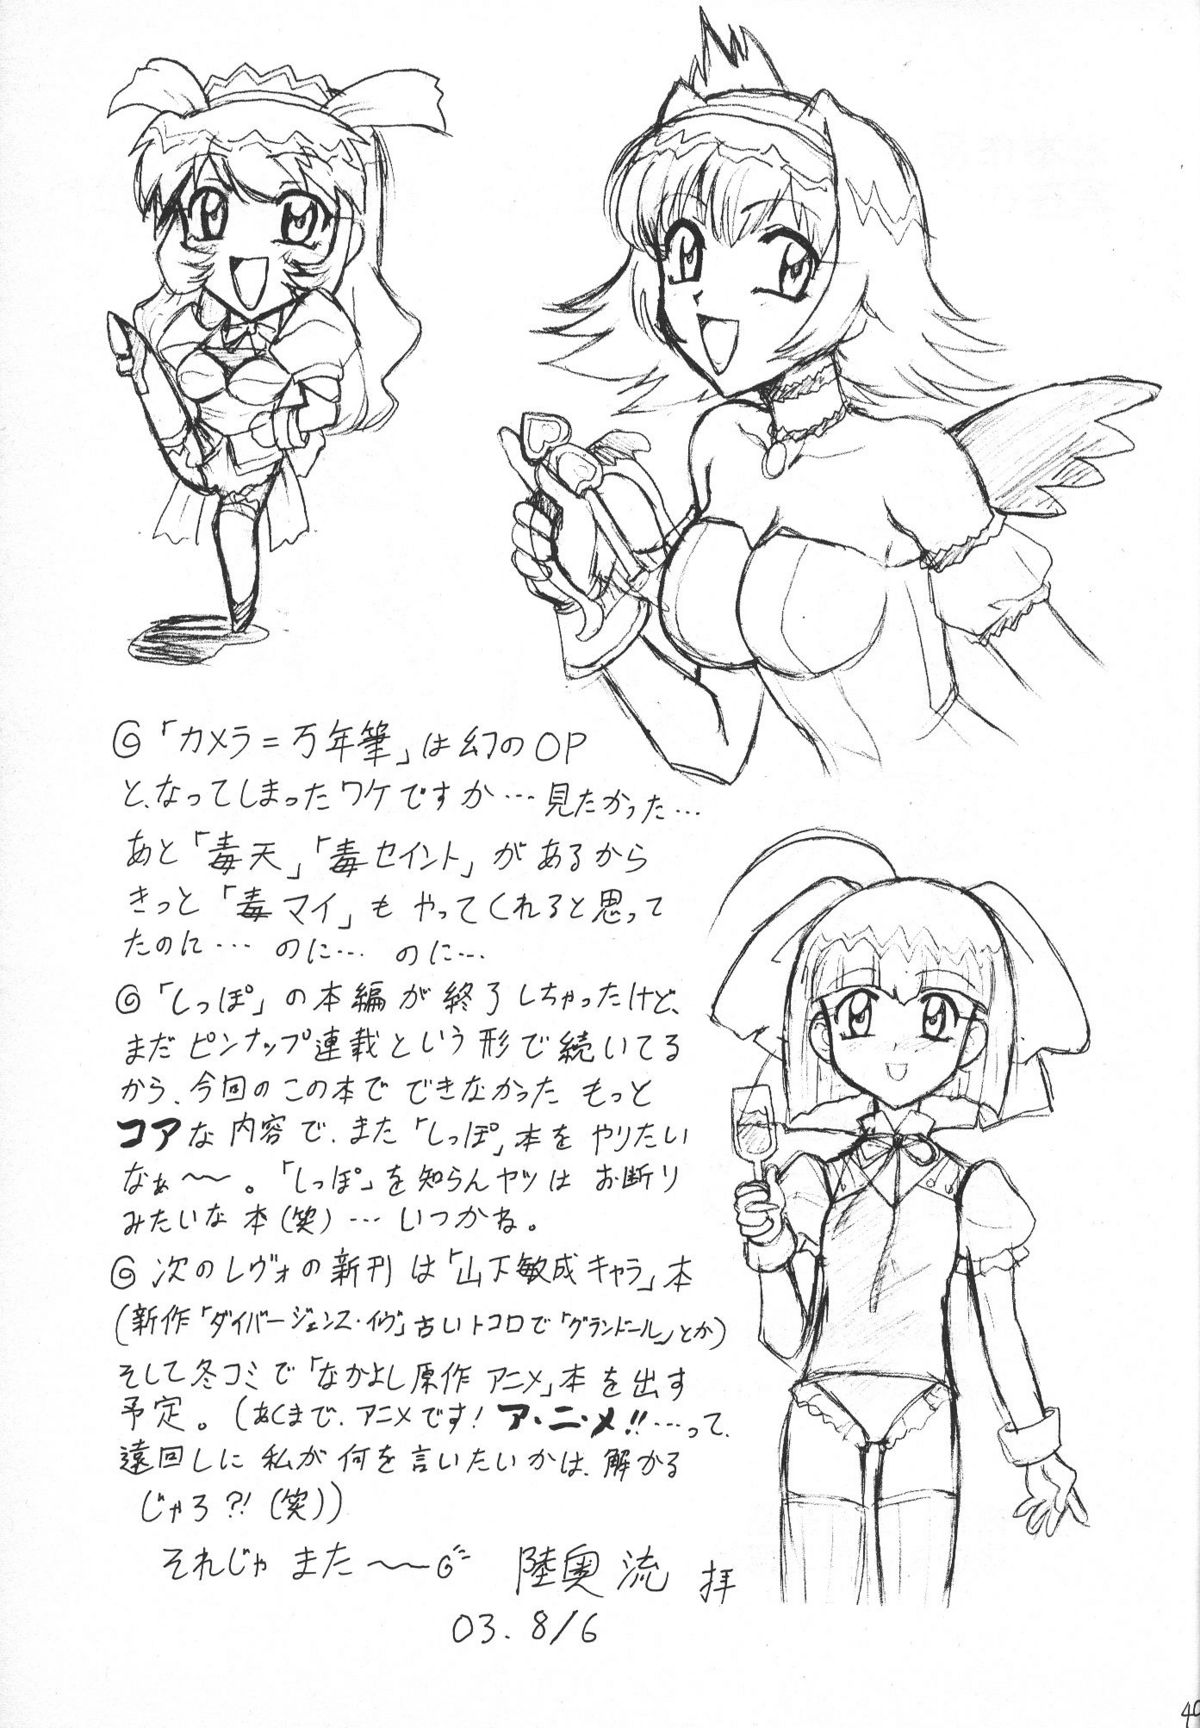 ◎「カメラ=万年筆」は幻のOP
と、なってしまったワケですか…見たかった…
あと「毒天」「毒セイント」があるから
きっと「毒マイ」もやってくれると思って
たのに… のに… のに…
◎「しっぽ」の本編が終了しちゃったけど、
まだピンナップ連載という形で続いてる
から、今回のこの本でできなかった もっと
コアな内容で、また「しっぽ」本をやりたい
なぁ〜〜。「しっぽ」を知らんヤツは お断り
みたいな本(笑)…いつかね。
◎次のレヴォの新刊は「山下敏成キャラ」本
(新作「ダイバージェンス・イヴ」古いトコロで「グランドール」とか)
そして冬コミで「なかよし原作アニメ」本を出す
予定。(あくまで、アニメです!ア・ニ・メ!!…って、
遠回しに私が何を言いたいかは、解かる
じゃろ?!(笑))
それじゃまた〜〜
陸奥 流 拝
03. 8/6